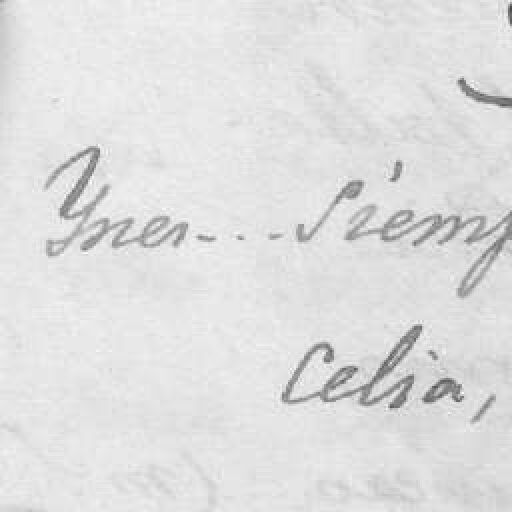 Ynes-..- Siemp
Celia,